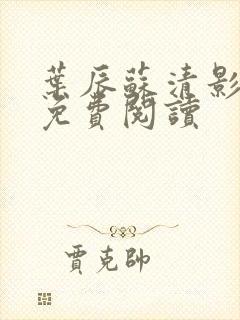 葉辰蘇清影
免費閱讀
賈克帥